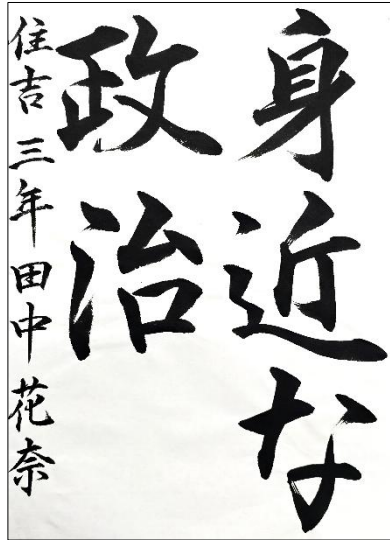 身近な
政治
住吉 三年 田中 花奈